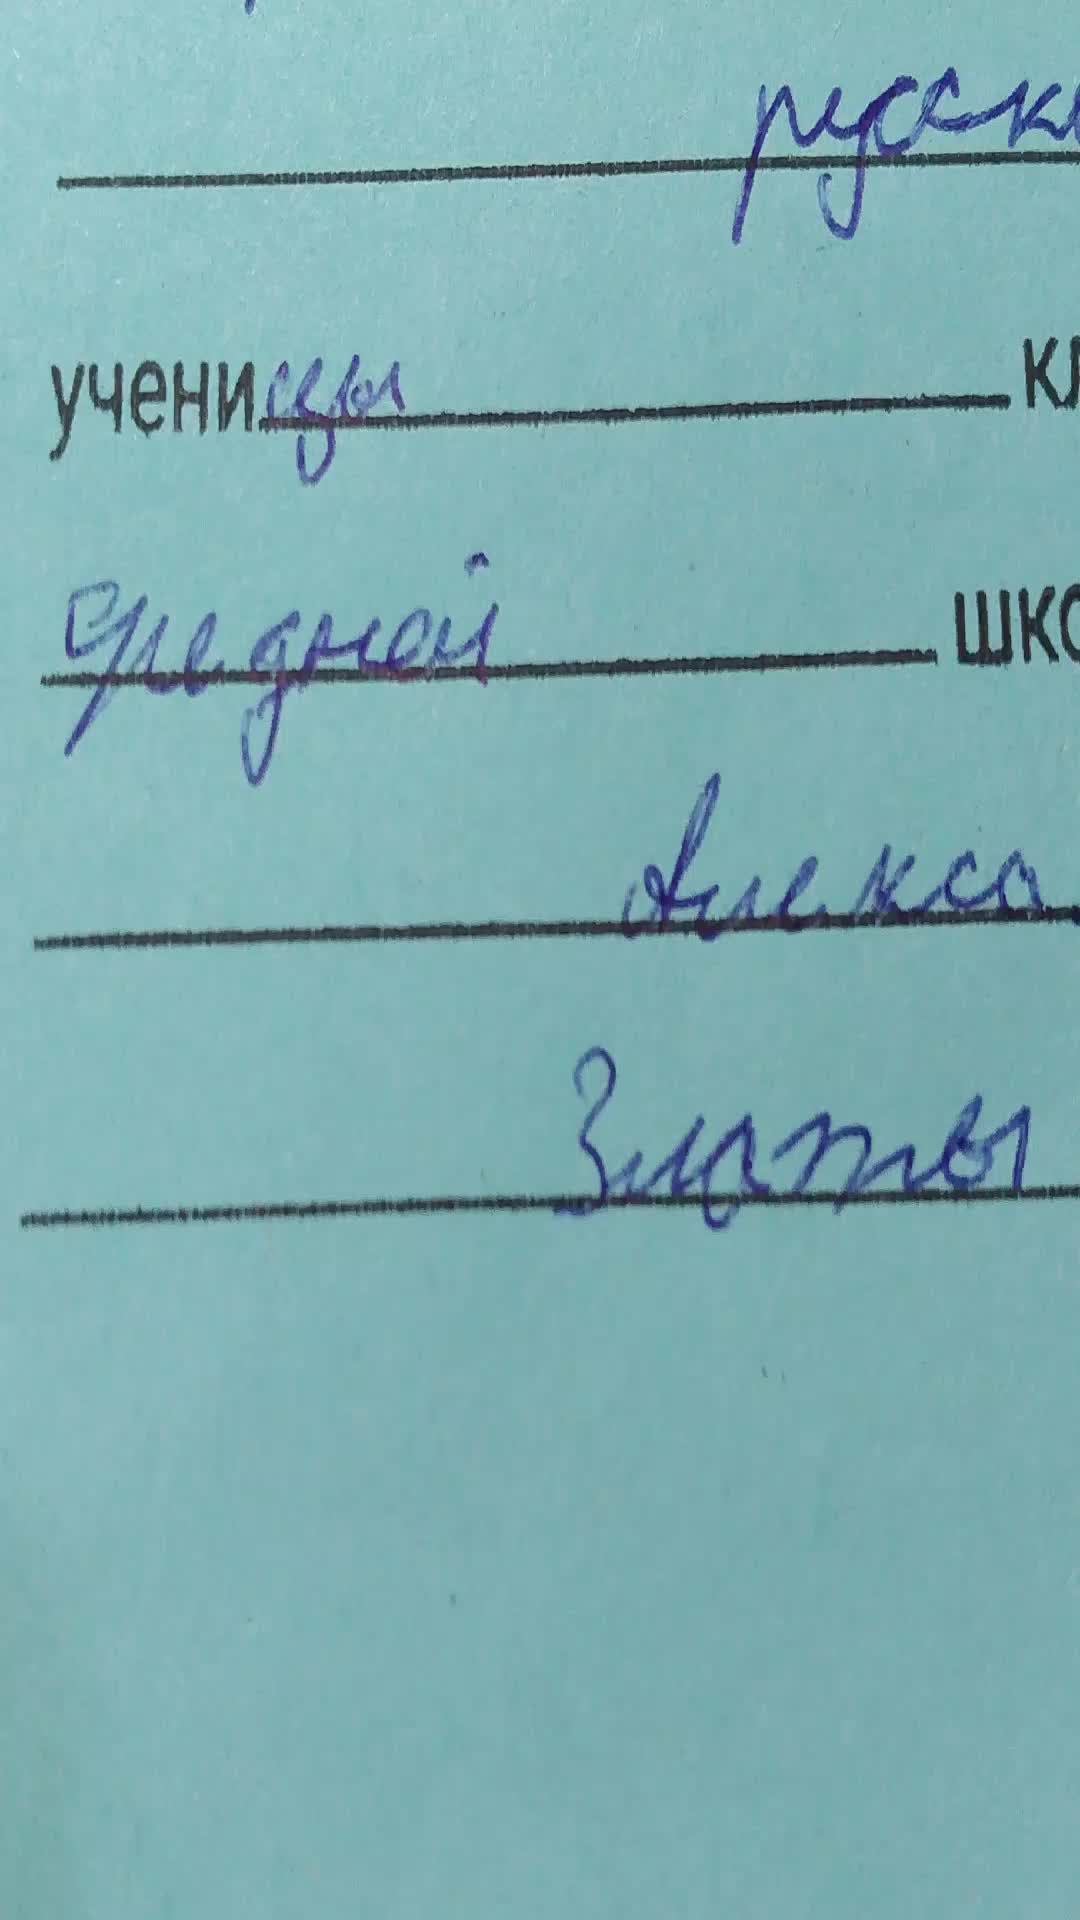 русск
ученицы кл
средней шко
Алекса
Златы